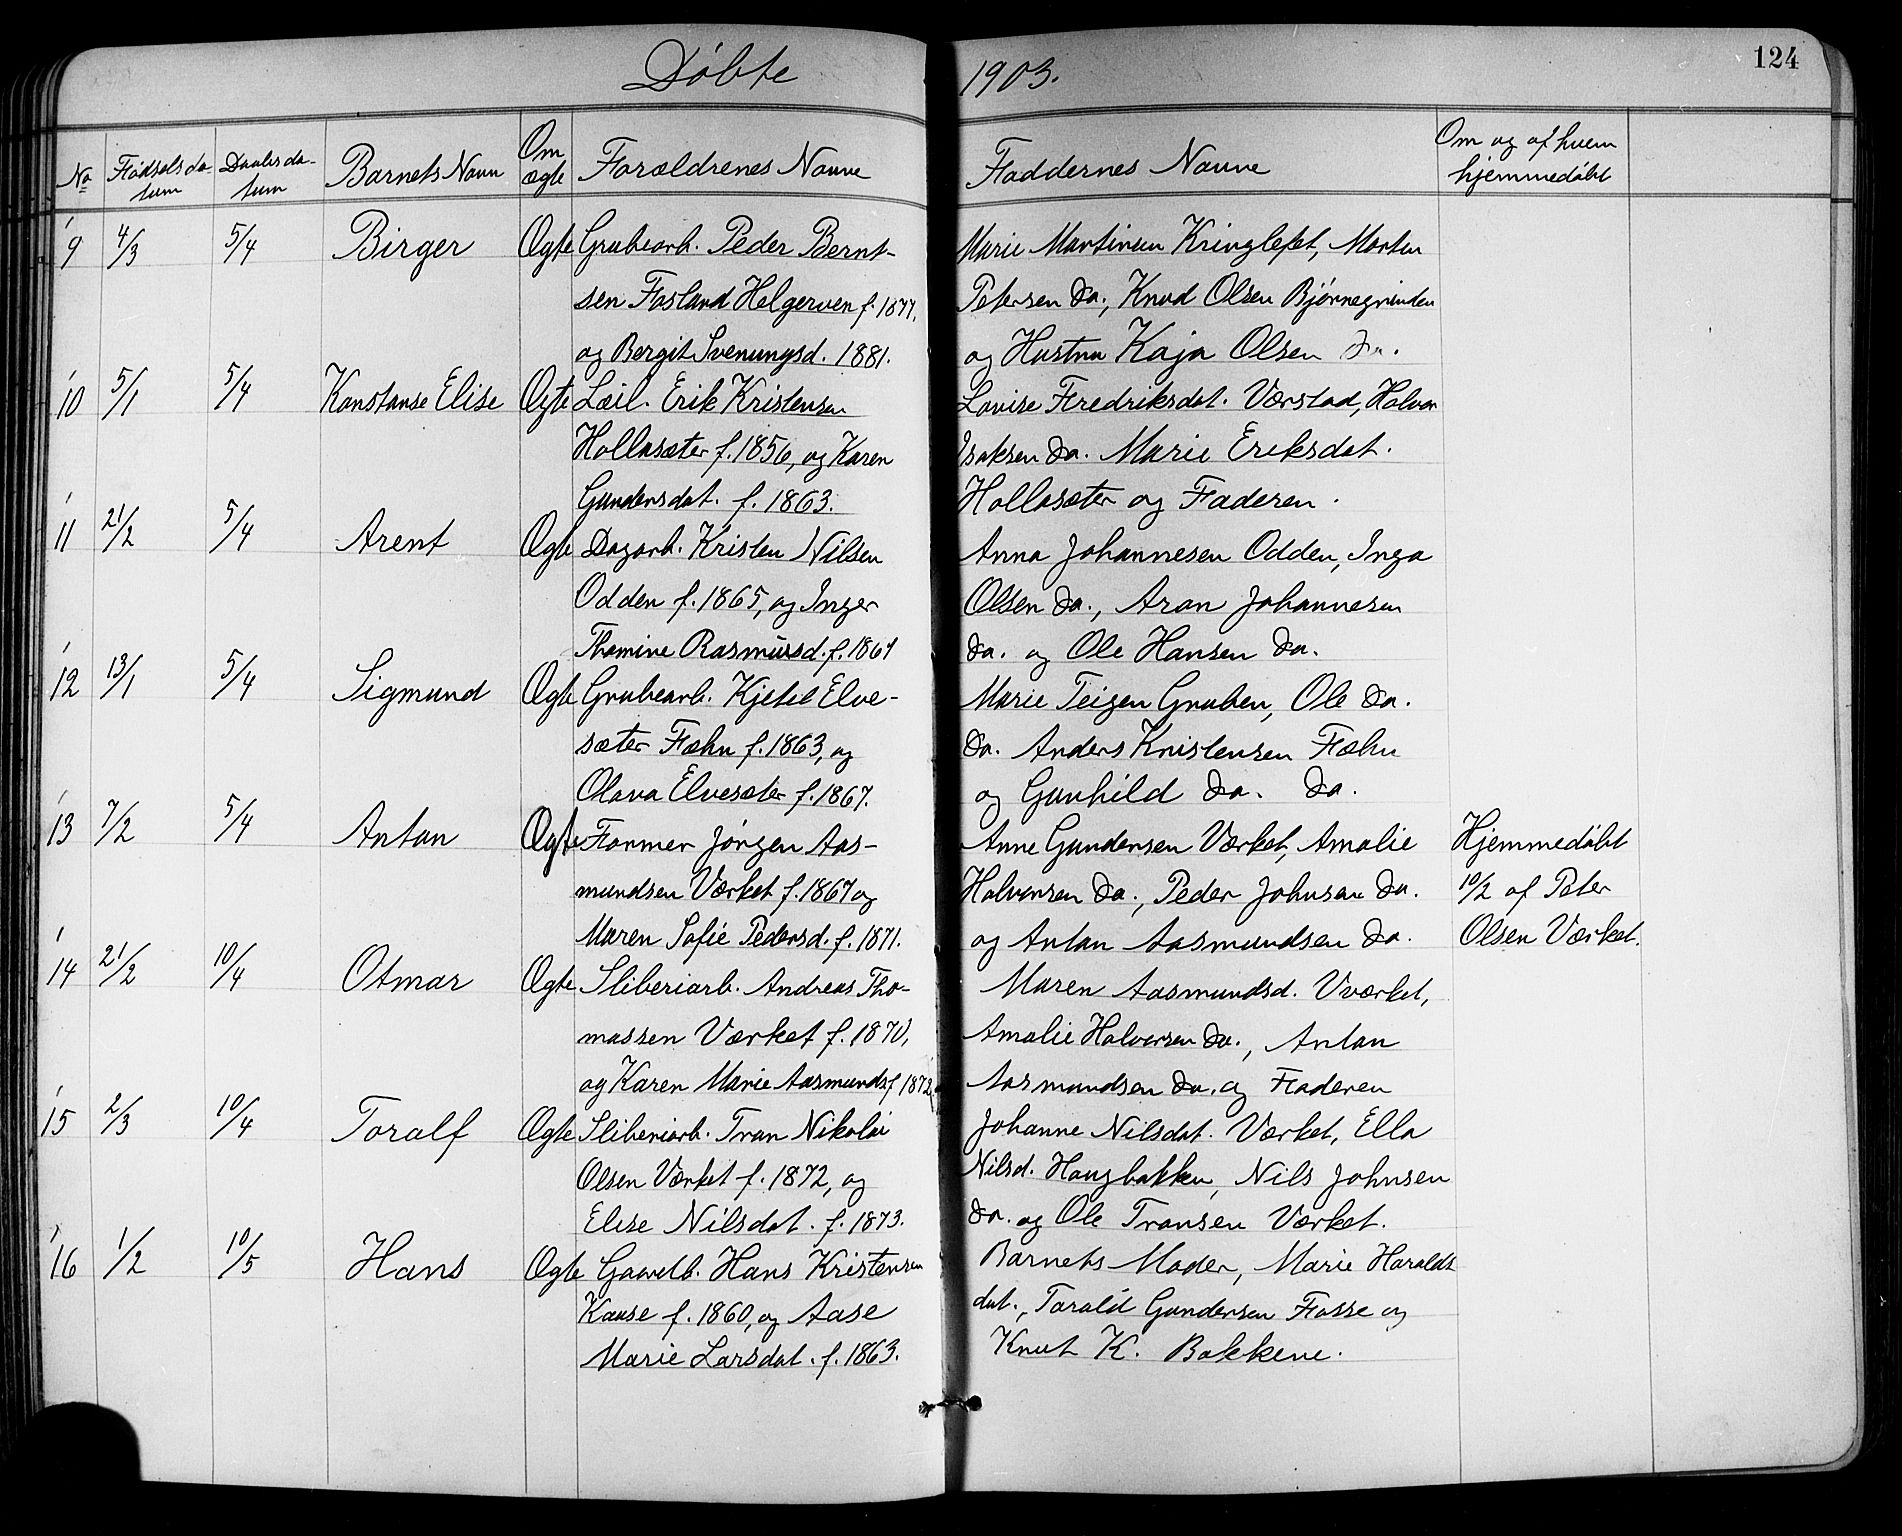 Døbte 1903. 124
No Fødselsdatum Daabsdatum Barnets Navn Om ægte Forældrenes Navne Faddernes Navne Om og af hvem hjemmedøbt
9 4/3 5/4 Birger Ægte Grubearb. Peder Bernt- Marie Martinsen Kringlefet, Morten
sen Fosland Helgerven f. 1877. Petersen do., Knud Olsen Bjørnegrinden
og Bergit Svenungsd. 1881. og Hustru Kaja Olsen do.
10 5/1 5/4 Konstanse Elise Ægte Leil. Erik Kristensen Lovise Fredriksdat. Værstad, Halvor
Hollasæter f. 1856, og Karen Isaksen do. Marie Eriksdat.
Gundersdat. f. 1863. Hollasæter og Faderen.
11 21/2 5/4 Arent Ægte Dagarb. Kristen Nilsen Anna Johannesen Odden, Inga
Odden f. 1865, og Inger Olsen do., Aron Johannesen
Thomine Rasmusd. f. 1867 do. og Ole Hansen do.
12 13/1 5/4 Sigmund Ægte Grubearb. Kjetil Elve- Marie Teigen Gruben, Ole do.
sæter Fæhn f. 1863, og do. Anders Kristensen Fæhn
Olava Elvesæter f. 1867. og Gunhild do. do.
13 7/2 5/4 Anton Ægte Former Jørgen Aas- Anne Gundersen Værket, Amalie Hjemmedøbt
mundsen Værket f. 1867 og Halvorsen do., Peder Johnsen do. 10/2 af Peter
Maren Sofie Pedersd. f. 1871. og Anton Aasmundsen do. Olsen Værket.
14 21/2 10/4 Otmar Ægte Sliberiarb. Andreas Tho- Maren Aasmundsd. Værket,
massen Værket f. 1870, Amalie Halvorsen do., Anton
og Karen Marie Aasmundsd. f. 1872 Aasmundsen do. og Faderen
15 2/3 10/4 Toralf Ægte Sliberiarb. Tran Nikolai Johanne Nilsdat. Værket, Ella
Olsen Værket f. 1872, og Nilsd. Haugbakken, Nils Johnsen
Elise Nilsdat. f. 1873. do. og Ole Transen Værket.
16 1/2 10/5 Hans Ægte Hans Kristensen Barnets Moder, Marie Haralds
Kause f. 1860, og Aase dat., Torald Gundersen Fosse og
Marie Larsdat. f. 1863. Knut K. Bakkene.